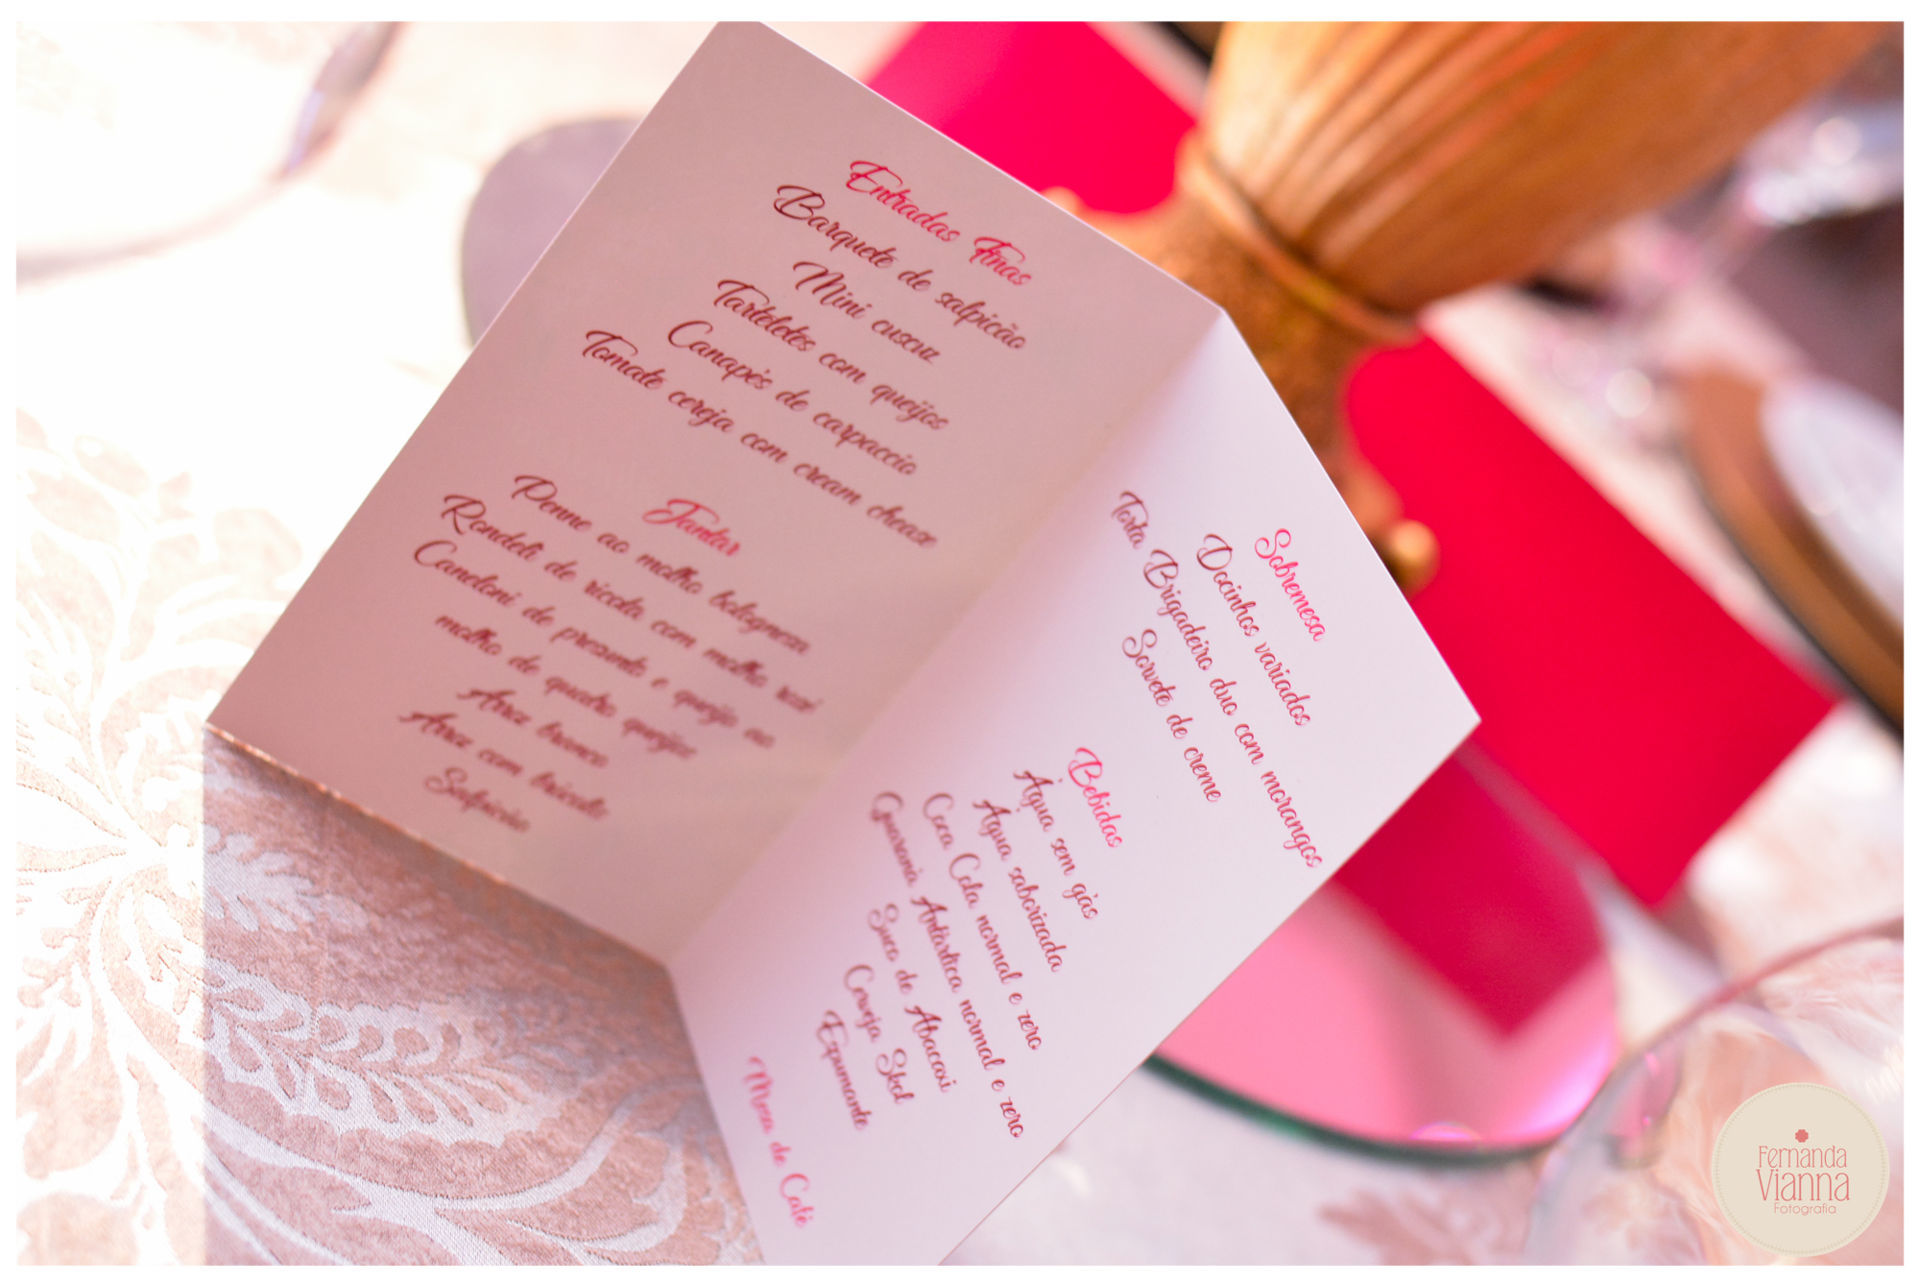 Entradas Finas
Barquete de salpicão
Mini cuscuz
Tarteletes com queijos
Canapés de carpaccio
Tomate cereja com cream chease
Jantar
Penne ao molho bolognesa
Rondeli de ricota com molho rosé
Caneloni de presunto e queijo ao
molho de quatro queijos
Arroz branco
Arroz com brócolis
Salpicão
Sobremesa
Docinhos variados
Torta Brigadeiro duo com morangos
Sorvete de creme
Bebidas
Água sem gás
Água saborizada
Coca Cola normal e zero
Guaraná Antartica normal e zero
Suco de Abacaxi
Cerveja Skol
Espumante
Mesa de Café
Fernanda
Vianna
Fotografia